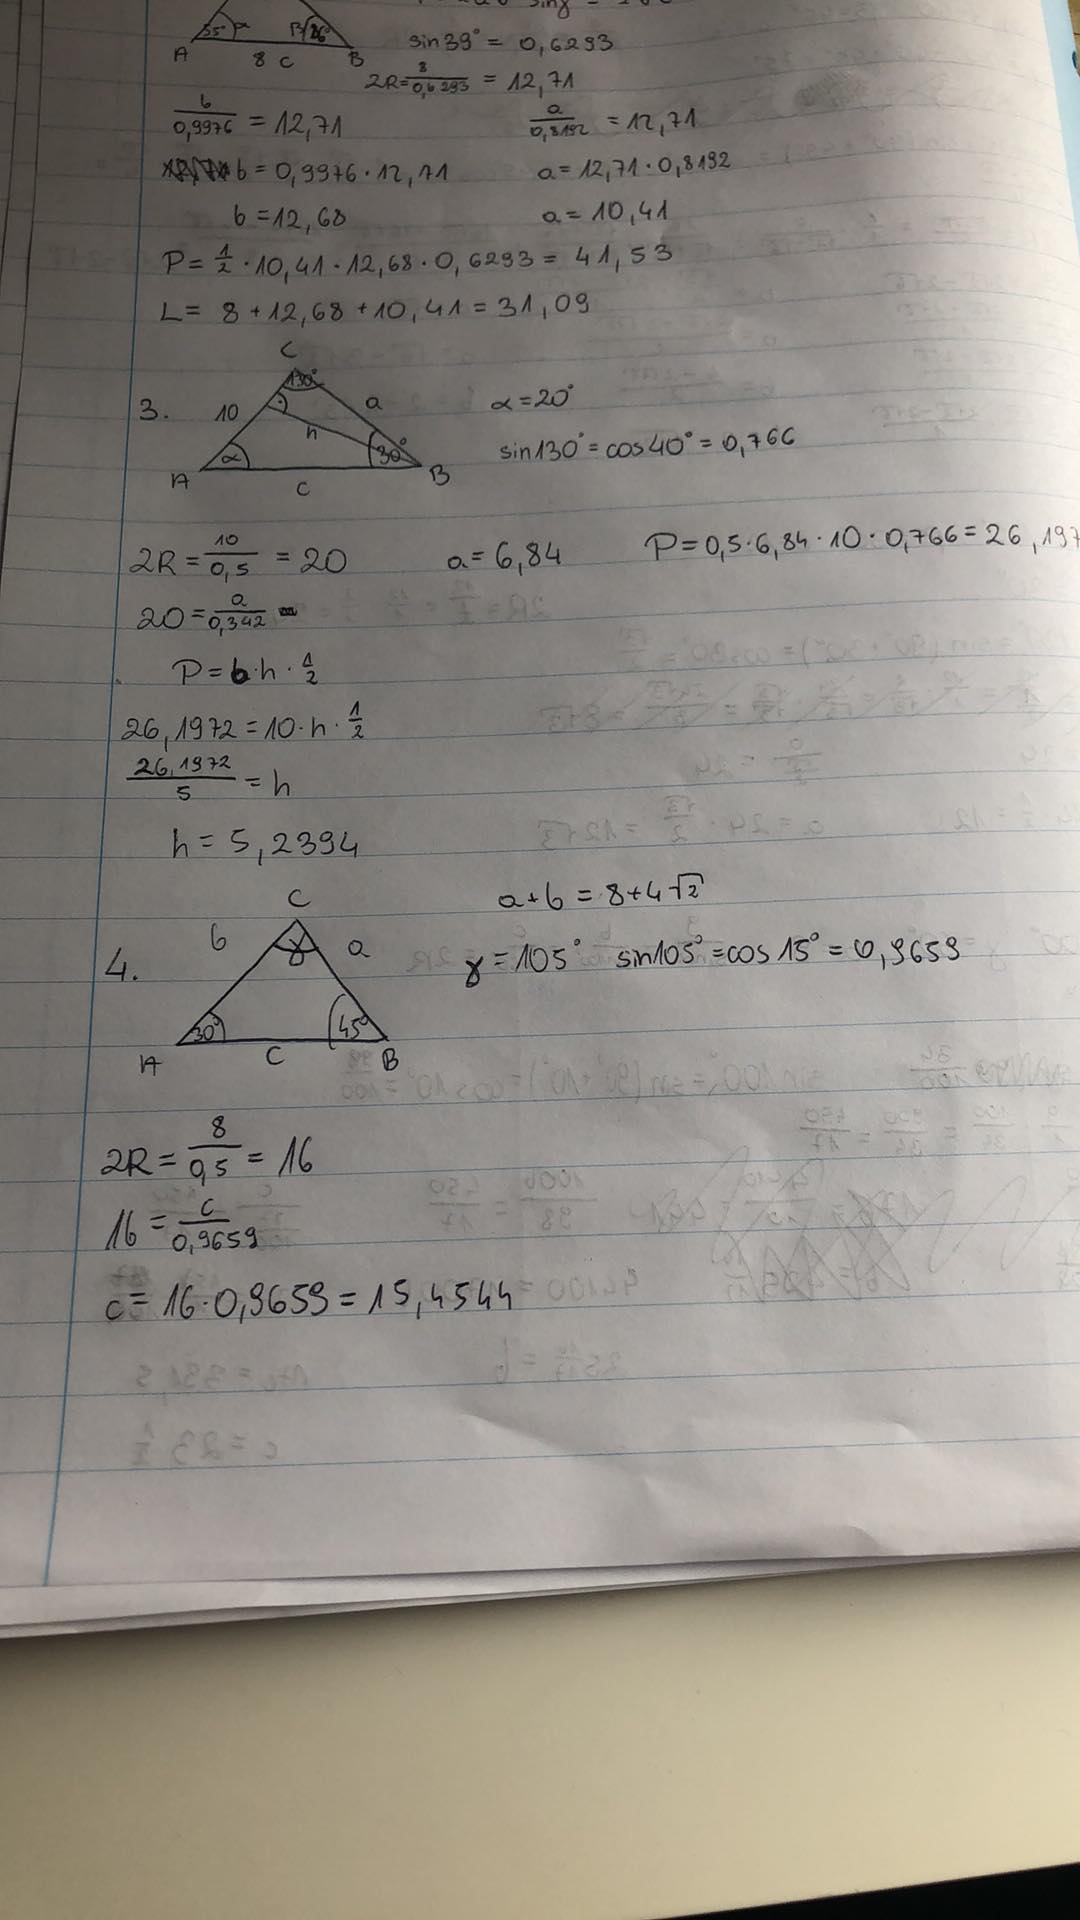 55° α B 86°
A 8 C B
sin39° = 0,6293
2R = 8/0,6293 = 12,71
b/0,9976 = 12,71
a/0,8192 = 12,71
b = 0,9976 · 12,71
a = 12,71 · 0,8192
b = 12,68
a = 10,41
P = 1/2 · 10,41 · 12,68 · 0,6293 = 41,53
L = 8 + 12,68 + 10,41 = 31,09
C
130°
3. 10 a α = 20°
h
α 30° sin130° = cos40° = 0,766
A C B
2R = 10/0,5 = 20
a = 6,84
P = 0,5 · 6,84 · 10 · 0,766 = 26,197
20 = a/0,342
P = b · h · 1/2
26,1972 = 10 · h · 1/2
26,1972/5 = h
h = 5,2394
a + b = 8 + 4√2
C
b γ a
4. γ = 105° sin105° = cos 15° = 0,9659
30° 45°
A C B
2R = 8/0,5 = 16
16 = c/0,9659
c = 16 · 0,9659 = 15,4544